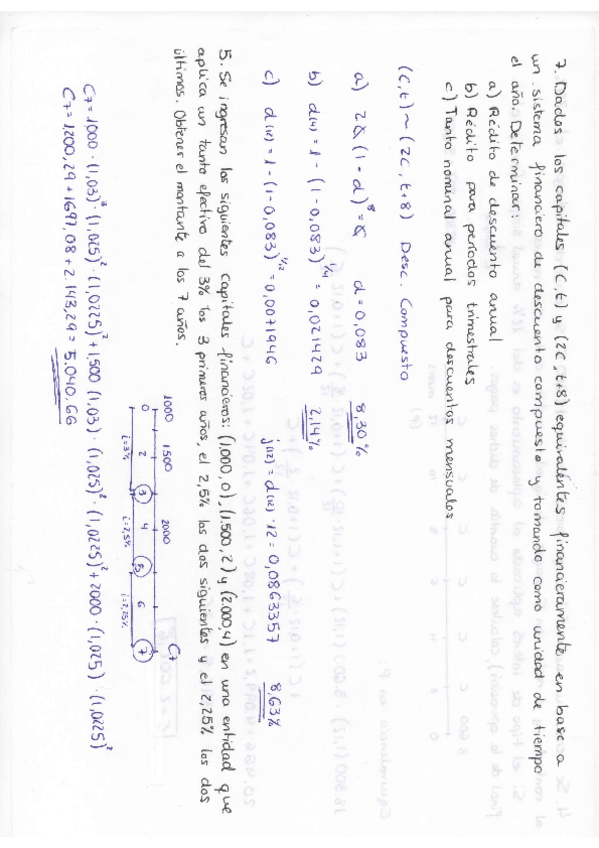 7. Dados los capitales (C,t) y (2C,t+8) equivalentes financieramente en base a
un sistema financiero de descuento compuesto y tomando como unidad de tiempo
el año. Determinar:
a) Rédito de descuento anual
b) Rédito para períodos trimestrales
c) Tanto nominal anual para descuentos mensuales
(C,t) ~ (2C, t+8) Desc. Compuesto
a) 2C(1-d)⁸ = C d = 0,083 8,30%
b) d(4) = 1 - (1-0,083)^1/4 = 0,021429 2,14%
c) d(12) = 1 - (1-0,083)^1/12 = 0,0071946 j(12) = d(12)·12 = 0,0863357 8,63%
5. Se ingresan los siguientes capitales financieros: (1.000,0), (1.500,2) y (2.000,4) en una entidad que
aplica un tanto efectivo del 3% los 3 primeros años, el 2,5% los dos siguientes y el 2,25% los dos
últimos. Obtener el montante a los 7 años.
1000 1.500 2000 C7
0 2 3 4 5 6 7
i=3% i=2,5% i=2,25%
C7 = 1000 · (1,03)³ · (1,025)² · (1,0225)² + 1.500 (1,03) · (1,025)² · (1,0225)² + 2000 · (1,025) · (1,0225)²
C7 = 1200,29 + 1697,08 + 2.143,29 = 5.040.66